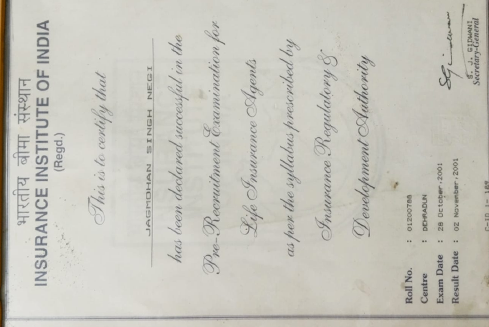 भारतीय बीमा संस्थान
INSURANCE INSTITUTE OF INDIA
(Regd.)
This is to certify that
JAGMOHAN SINGH NEGI
has been declared successful in the
Pre-Recruitment Examination for
Life Insurance Agents
as per the syllabus prescribed by
Insurance Regulatory &
Development Authority
Roll No. : 01200788
Centre : DEHRADUN
Exam Date : 28 October, 2001
Result Date : 02 November, 2001
S. J. GIDWANI
Secretary-General